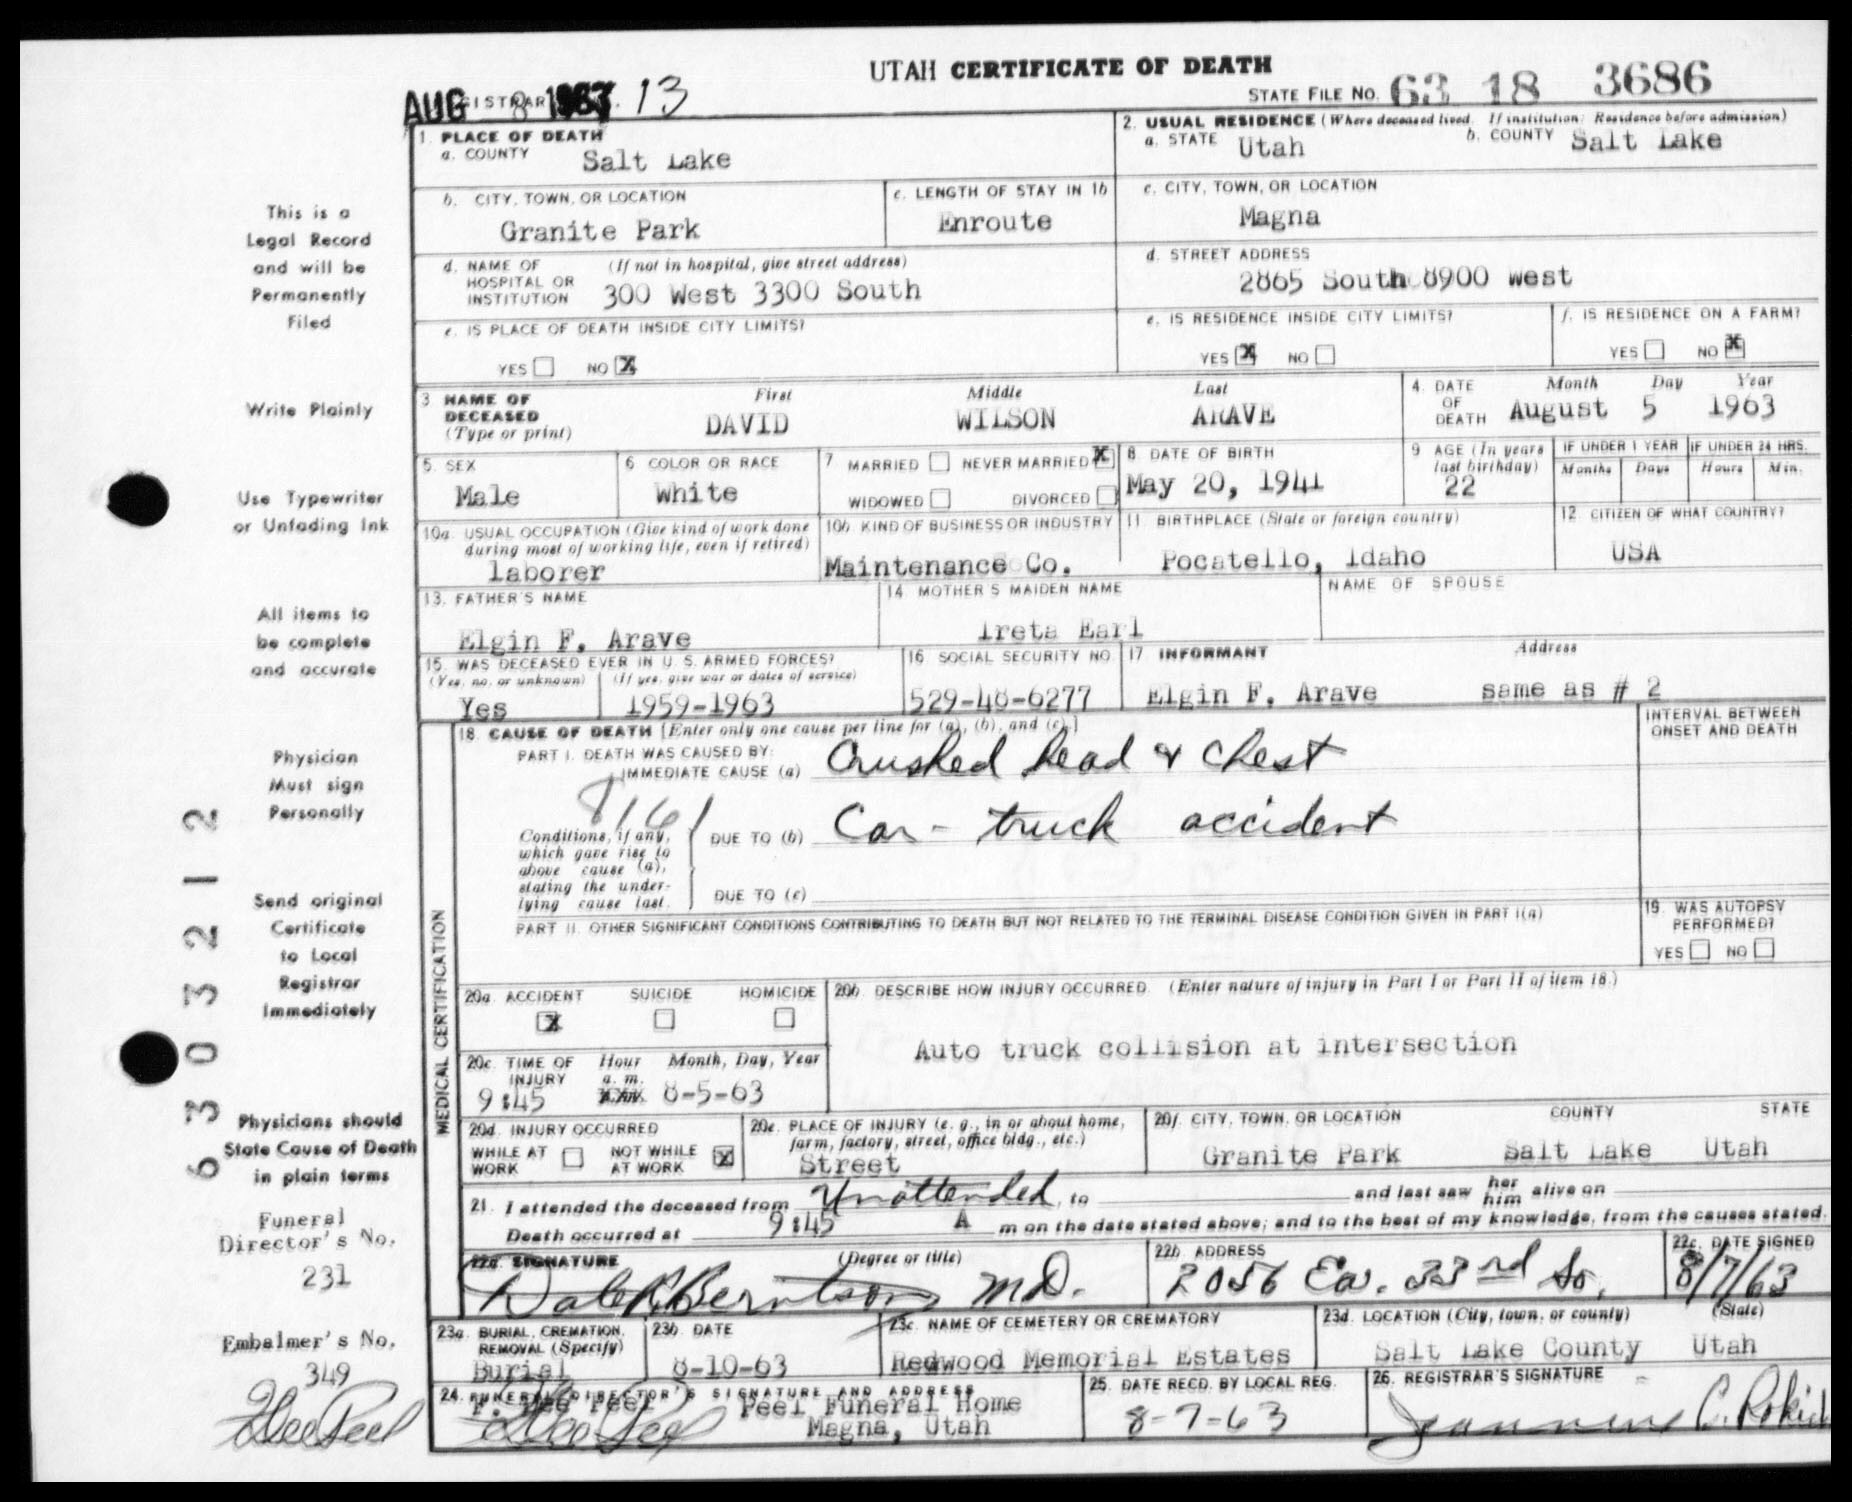 UTAH CERTIFICATE OF DEATH
AUG 8 1963 13
STATE FILE NO. 63 18 3686
1. PLACE OF DEATH
a. COUNTY Salt Lake
2. USUAL RESIDENCE (Where deceased lived. If institution: Residence before admission)
a. STATE Utah b. COUNTY Salt Lake
b. CITY, TOWN, OR LOCATION
Granite Park
c. LENGTH OF STAY IN 1b
Enroute
c. CITY, TOWN, OR LOCATION
Magna
d. NAME OF HOSPITAL OR INSTITUTION (If not in hospital, give street address)
300 West 3300 South
d. STREET ADDRESS
2865 South 8900 West
e. IS PLACE OF DEATH INSIDE CITY LIMITS?
YES NO X
e. IS RESIDENCE INSIDE CITY LIMITS?
YES X NO
f. IS RESIDENCE ON A FARM?
YES NO X
3 NAME OF DECEASED (Type or print)
First Middle Last
DAVID WILSON ARAVE
4. DATE OF DEATH
Month Day Year
August 5 1963
5. SEX
Male
6 COLOR OR RACE
White
7 MARRIED NEVER MARRIED X
WIDOWED DIVORCED
8 DATE OF BIRTH
May 20, 1941
9 AGE (In years last birthday)
22
IF UNDER 1 YEAR
Months Days
IF UNDER 24 HRS.
Hours Min.
10a. USUAL OCCUPATION (Give kind of work done during most of working life, even if retired)
laborer
10b KIND OF BUSINESS OR INDUSTRY
Maintenance Co.
11. BIRTHPLACE (State or foreign country)
Pocatello, Idaho
12 CITIZEN OF WHAT COUNTRY?
USA
13. FATHER'S NAME
Elgin F. Arave
14 MOTHER'S MAIDEN NAME
Ireta Earl
NAME OF SPOUSE
15. WAS DECEASED EVER IN U. S. ARMED FORCES?
(Yes, no, or unknown) (If yes, give war or dates of service)
Yes 1959-1963
16 SOCIAL SECURITY NO.
529-48-6277
17 INFORMANT Address
Elgin F. Arave same as # 2
18. CAUSE OF DEATH [Enter only one cause per line for (a), (b), and (c).]
PART I. DEATH WAS CAUSED BY:
IMMEDIATE CAUSE (a) Crushed head & Chest
8161
Conditions, if any, which gave rise to above cause (a), stating the underlying cause last.
DUE TO (b) Car - truck accident
DUE TO (c)
INTERVAL BETWEEN ONSET AND DEATH
PART II. OTHER SIGNIFICANT CONDITIONS CONTRIBUTING TO DEATH BUT NOT RELATED TO THE TERMINAL DISEASE CONDITION GIVEN IN PART I(a)
19. WAS AUTOPSY PERFORMED?
YES NO
MEDICAL CERTIFICATION
20a. ACCIDENT SUICIDE HOMICIDE
X
20b. DESCRIBE HOW INJURY OCCURRED. (Enter nature of injury in Part I or Part II of item 18.)
Auto truck collision at intersection
20c. TIME OF INJURY Hour Month, Day, Year
a. m.
9:45 8-5-63
20d. INJURY OCCURRED
WHILE AT WORK NOT WHILE AT WORK X
20e. PLACE OF INJURY (e. g., in or about home, farm, factory, street, office bldg., etc.)
Street
20f. CITY, TOWN, OR LOCATION COUNTY STATE
Granite Park Salt Lake Utah
21. I attended the deceased from Unattended, to and last saw her him alive on
Death occurred at 9:45 A m on the date stated above; and to the best of my knowledge, from the causes stated.
22a. SIGNATURE (Degree or title)
Dale R Berntson M.D.
22b. ADDRESS
2056 Ea. 33rd So.
22c. DATE SIGNED
8/7/63
23a. BURIAL, CREMATION, REMOVAL (Specify)
Burial
23b. DATE
8-10-63
23c. NAME OF CEMETERY OR CREMATORY
Redwood Memorial Estates
23d. LOCATION (City, town, or county) (State)
Salt Lake County Utah
24. FUNERAL DIRECTOR'S SIGNATURE AND ADDRESS
F. Dee Peel Peel Funeral Home
Magna, Utah
25. DATE RECD. BY LOCAL REG.
8-7-63
26. REGISTRAR'S SIGNATURE
This is a
Legal Record
and will be
Permanently
Filed
Write Plainly
Use Typewriter
or Unfading Ink
All items to
be complete
and accurate
Physician
Must sign
Personally
Send original
Certificate
to Local
Registrar
Immediately
Physicians should
State Cause of Death
in plain terms
Funeral
Director's No.
231
Embalmer's No.
349
F Dee Peel
6303212